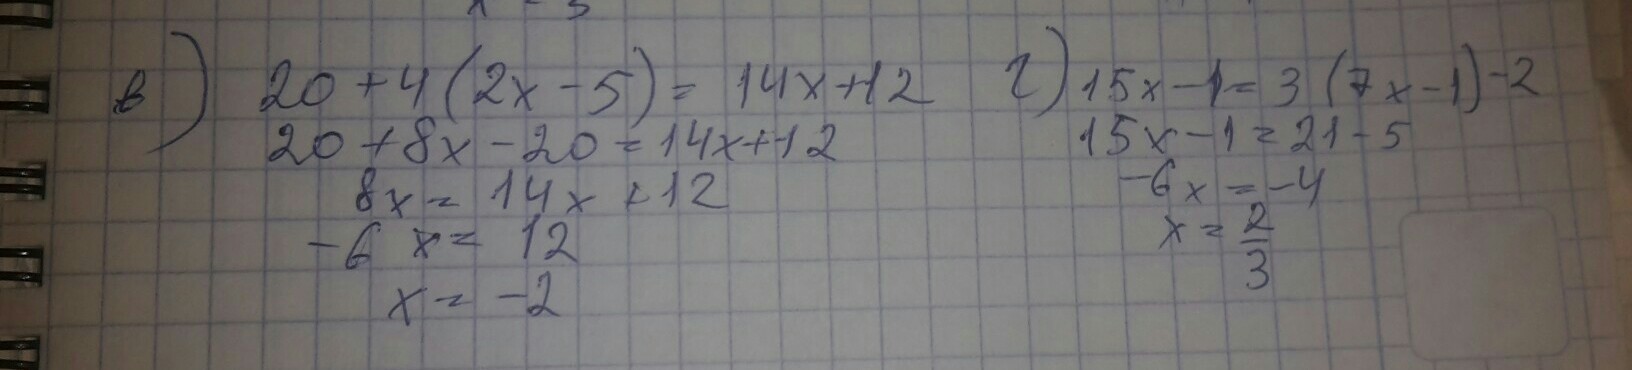 x = 5
в) 20 + 4 (2x - 5) = 14x + 12
20 + 8x - 20 = 14x + 12
8x = 14x + 12
-6 x = 12
x = -2
г) 15x - 1 = 3 (7x - 1) - 2
15x - 1 = 21 - 5
-6x = -4
x = 2/3